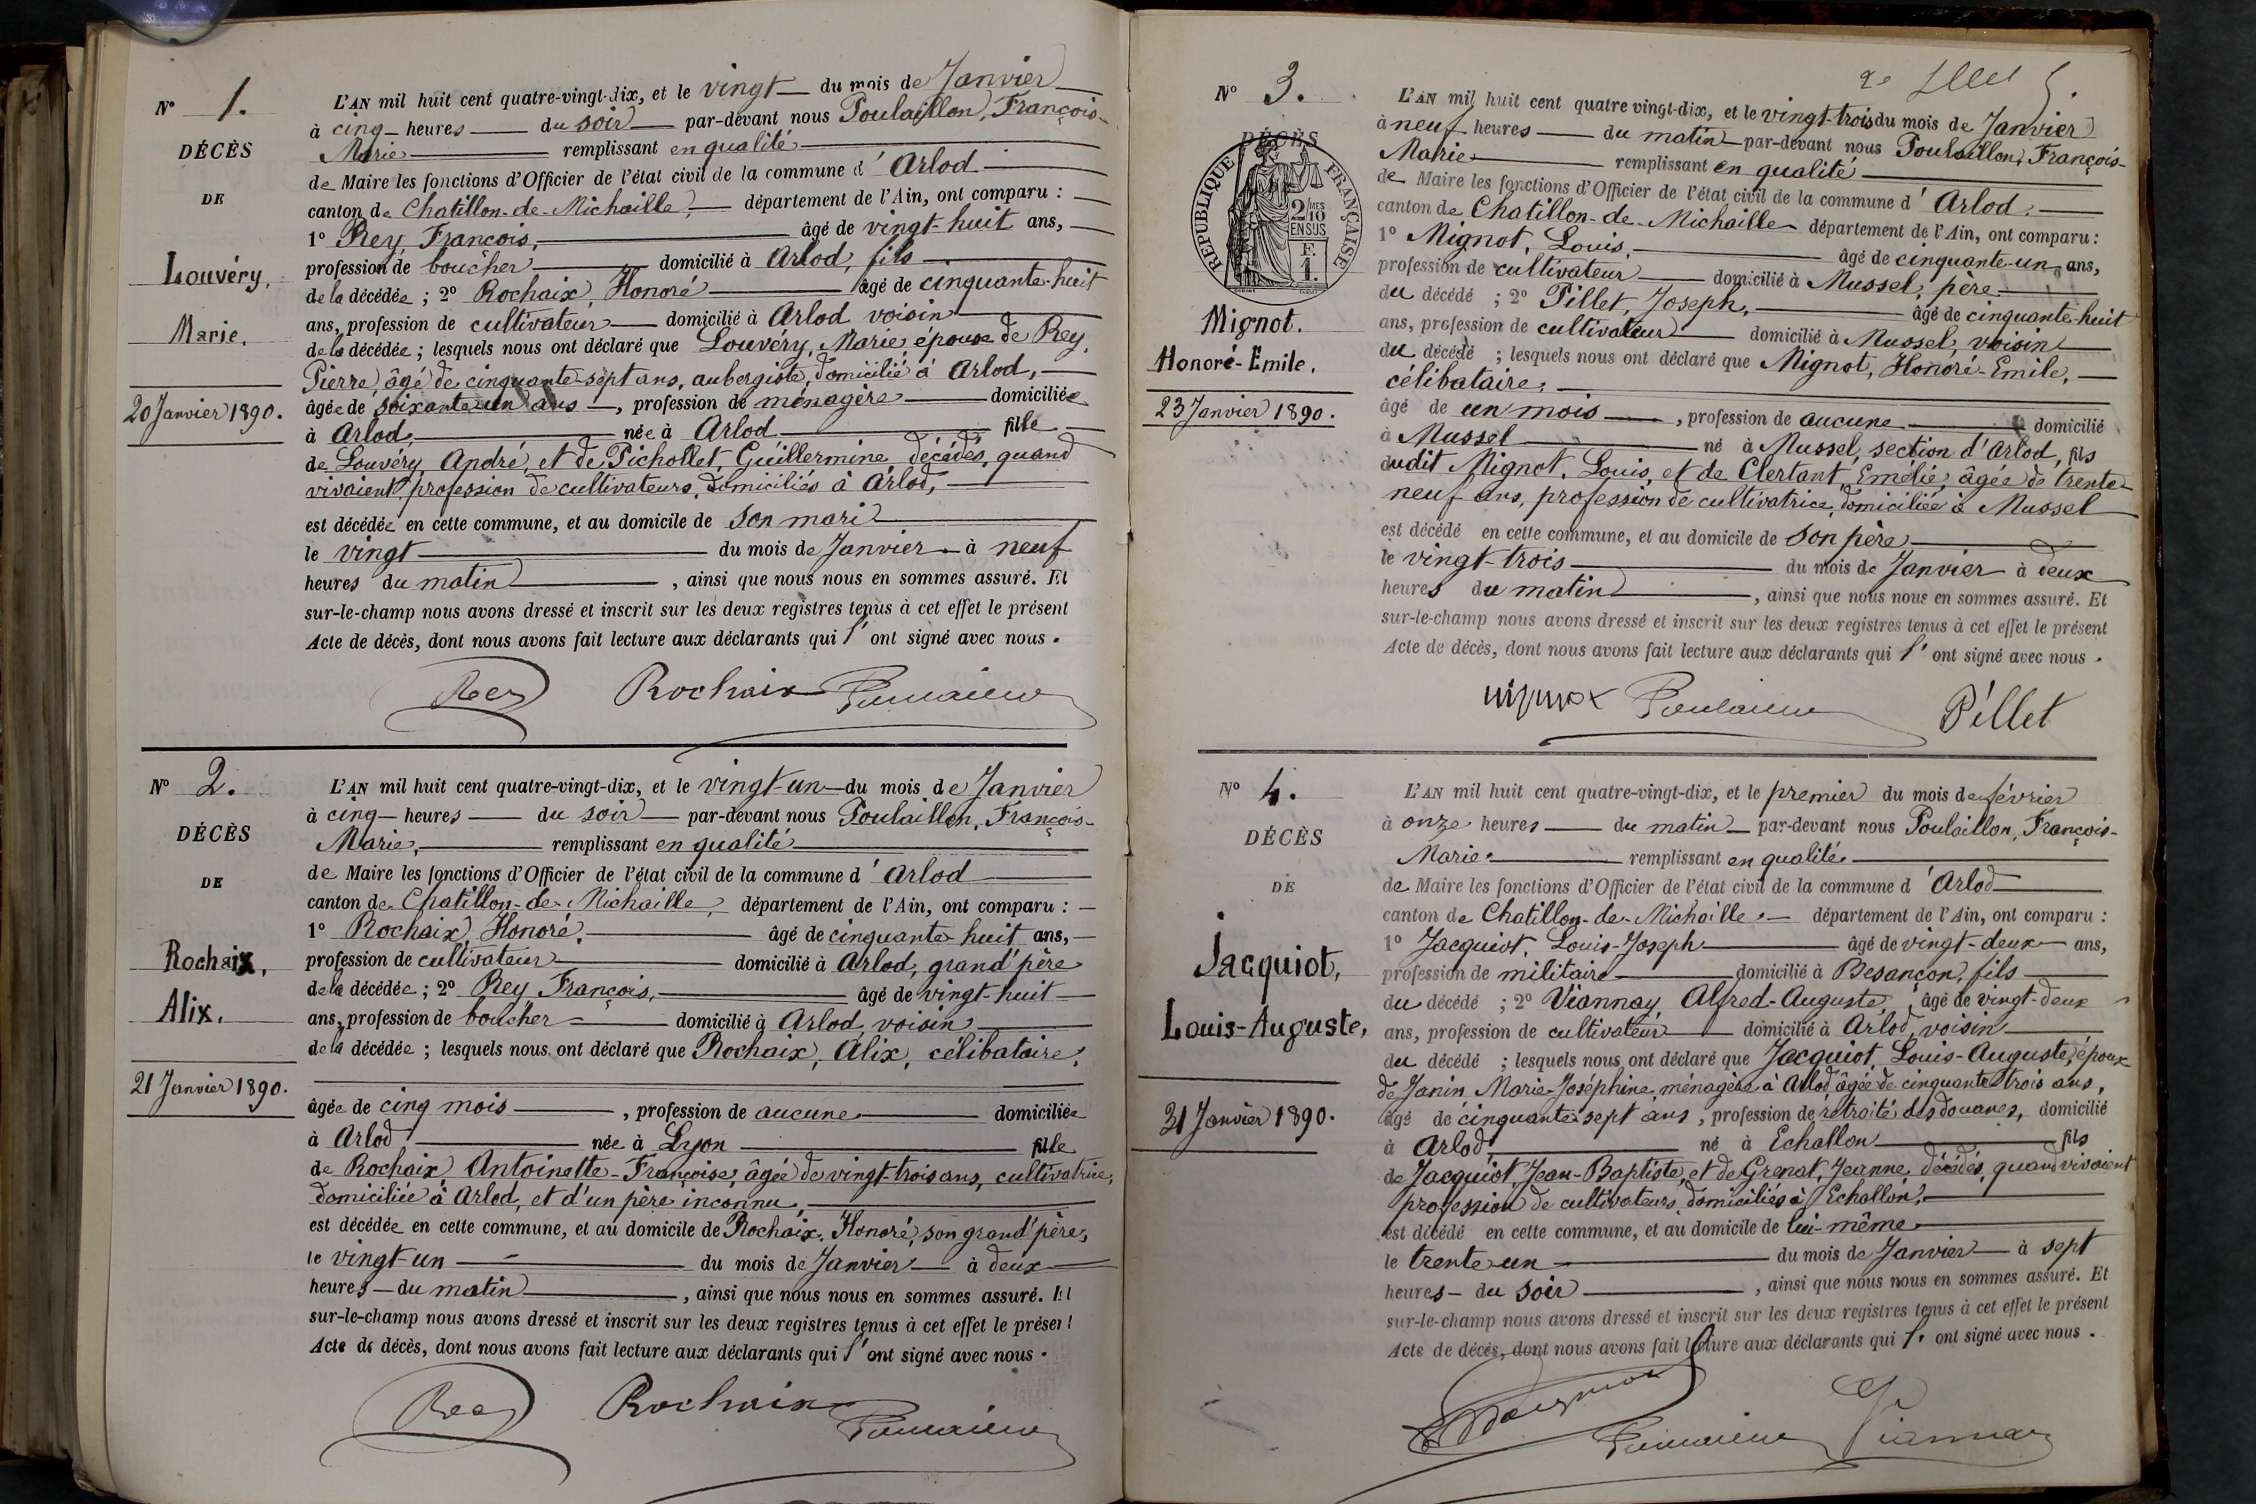 N° 1.
DÉCÈS
DE
Louvéry,
Marie.
20 Janvier 1890.
L'AN mil huit cent quatre-vingt-dix, et le vingt du mois de Janvier
à cinq heures du soir par-devant nous Poulaillon, François-
Marie remplissant en qualité
de Maire les fonctions d'Officier de l'état civil de la commune d'Arlod
canton de Chatillon-de-Michaille, département de l'Ain, ont comparu :
1° Rey, François, âgé de vingt-huit ans,
profession de boucher domicilié à Arlod, fils
de la décédée ; 2° Rochaix, Honoré âgé de cinquante-huit
ans, profession de cultivateur domicilié à Arlod, voisin
de la décédée ; lesquels nous ont déclaré que Louvéry, Marie, épouse de Rey,
Pierre, âgé de cinquante-sept ans, aubergiste, domicilié à Arlod,
âgée de soixante-un ans, profession de ménagère domiciliée
à Arlod, née à Arlod fille
de Louvéry, André, et de Pichollet, Guillermine, décédés, quand
vivaient, profession de cultivateurs, domiciliés à Arlod,
est décédée en cette commune, et au domicile de son mari
le vingt du mois de Janvier à neuf
heures du matin, ainsi que nous nous en sommes assuré. Et
sur-le-champ nous avons dressé et inscrit sur les deux registres tenus à cet effet le présent
Acte de décès, dont nous avons fait lecture aux déclarants qui l'ont signé avec nous.
Rey Rochaix Poulaillon
N° 2.
DÉCÈS
DE
Rochaix,
Alix.
21 Janvier 1890.
L'AN mil huit cent quatre-vingt-dix, et le vingt-un du mois de Janvier
à cinq heures du soir par-devant nous Poulaillon, François-
Marie, remplissant en qualité
de Maire les fonctions d'Officier de l'état civil de la commune d'Arlod
canton de Chatillon-de-Michaille, département de l'Ain, ont comparu :
1° Rochaix, Honoré, âgé de cinquante-huit ans,
profession de cultivateur domicilié à Arlod, grand'père
de la décédée ; 2° Rey, François, âgé de vingt-huit
ans, profession de boucher domicilié à Arlod, voisin
de la décédée ; lesquels nous ont déclaré que Rochaix, Alix, célibataire,
âgée de cinq mois, profession de aucune domiciliée
à Arlod née à Lyon fille
de Rochaix Antoinette-Françoise, âgée de vingt-trois ans, cultivatrice,
domiciliée à Arlod, et d'un père inconnu,
est décédée en cette commune, et au domicile de Rochaix, Honoré, son grand'père,
le vingt-un du mois de Janvier à deux
heures du matin, ainsi que nous nous en sommes assuré. Et
sur-le-champ nous avons dressé et inscrit sur les deux registres tenus à cet effet le présent
Acte de décès, dont nous avons fait lecture aux déclarants qui l'ont signé avec nous.
Rey Rochaix Poulaillon
N° 3.
DÉCÈS
RÉPUBLIQUE FRANÇAISE
2 MES
10
EN SUS
F.
1.
Mignot.
Honoré-Émile.
23 Janvier 1890.
L'AN mil huit cent quatre vingt-dix, et le vingt-trois du mois de Janvier
à neuf heures du matin par-devant nous Poulaillon, François-
Marie remplissant en qualité
de Maire les fonctions d'Officier de l'état civil de la commune d'Arlod,
canton de Chatillon-de-Michaille département de l'Ain, ont comparu :
1° Mignot, Louis, âgé de cinquante-un ans,
profession de cultivateur domicilié à Mussel, père
du décédé ; 2° Pillet, Joseph, âgé de cinquante-huit
ans, profession de cultivateur domicilié à Mussel, voisin
du décédé ; lesquels nous ont déclaré que Mignot, Honoré-Emile,
célibataire,
âgé de un mois, profession de aucune domicilié
à Mussel né à Mussel, section d'Arlod, fils
dudit Mignot, Louis, et de Clertant, Emélie, âgée de trente-
neuf ans, profession de cultivatrice, domiciliée à Mussel
est décédé en cette commune, et au domicile de son père
le vingt-trois du mois de Janvier à deux
heures du matin, ainsi que nous nous en sommes assuré. Et
sur-le-champ nous avons dressé et inscrit sur les deux registres tenus à cet effet le présent
Acte de décès, dont nous avons fait lecture aux déclarants qui l'ont signé avec nous.
Poulaillon Pillet
N° 4.
DÉCÈS
DE
Jacquiot,
Louis-Auguste,
31 Janvier 1890.
L'AN mil huit cent quatre-vingt-dix, et le premier du mois de février
à onze heures du matin par-devant nous Poulaillon, François-
Marie remplissant en qualité
de Maire les fonctions d'Officier de l'état civil de la commune d'Arlod
canton de Chatillon-de-Michaille département de l'Ain, ont comparu :
1° Jacquiot, Louis-Joseph âgé de vingt-deux ans,
profession de militaire domicilié à Besançon, fils
du décédé ; 2° Viannay, Alfred-Auguste, âgé de vingt-deux
ans, profession de cultivateur domicilié à Arlod, voisin
du décédé ; lesquels nous ont déclaré que Jacquiot, Louis-Auguste, époux
de Janin, Marie-Joséphine, ménagère à Arlod, âgée de cinquante-trois ans,
âgé de cinquante-sept ans, profession de retraité des douanes, domicilié
à Arlod, né à Echallon fils
de Jacquiot, Jean-Baptiste, et de Grenat, Jeanne, décédés, quand vivaient
profession de cultivateurs, domiciliés à Echallon,
est décédé en cette commune, et au domicile de lui-même
le trente-un du mois de Janvier à sept
heures du soir, ainsi que nous nous en sommes assuré. Et
sur-le-champ nous avons dressé et inscrit sur les deux registres tenus à cet effet le présent
Acte de décès, dont nous avons fait lecture aux déclarants qui l'ont signé avec nous.
Poulaillon Viannay